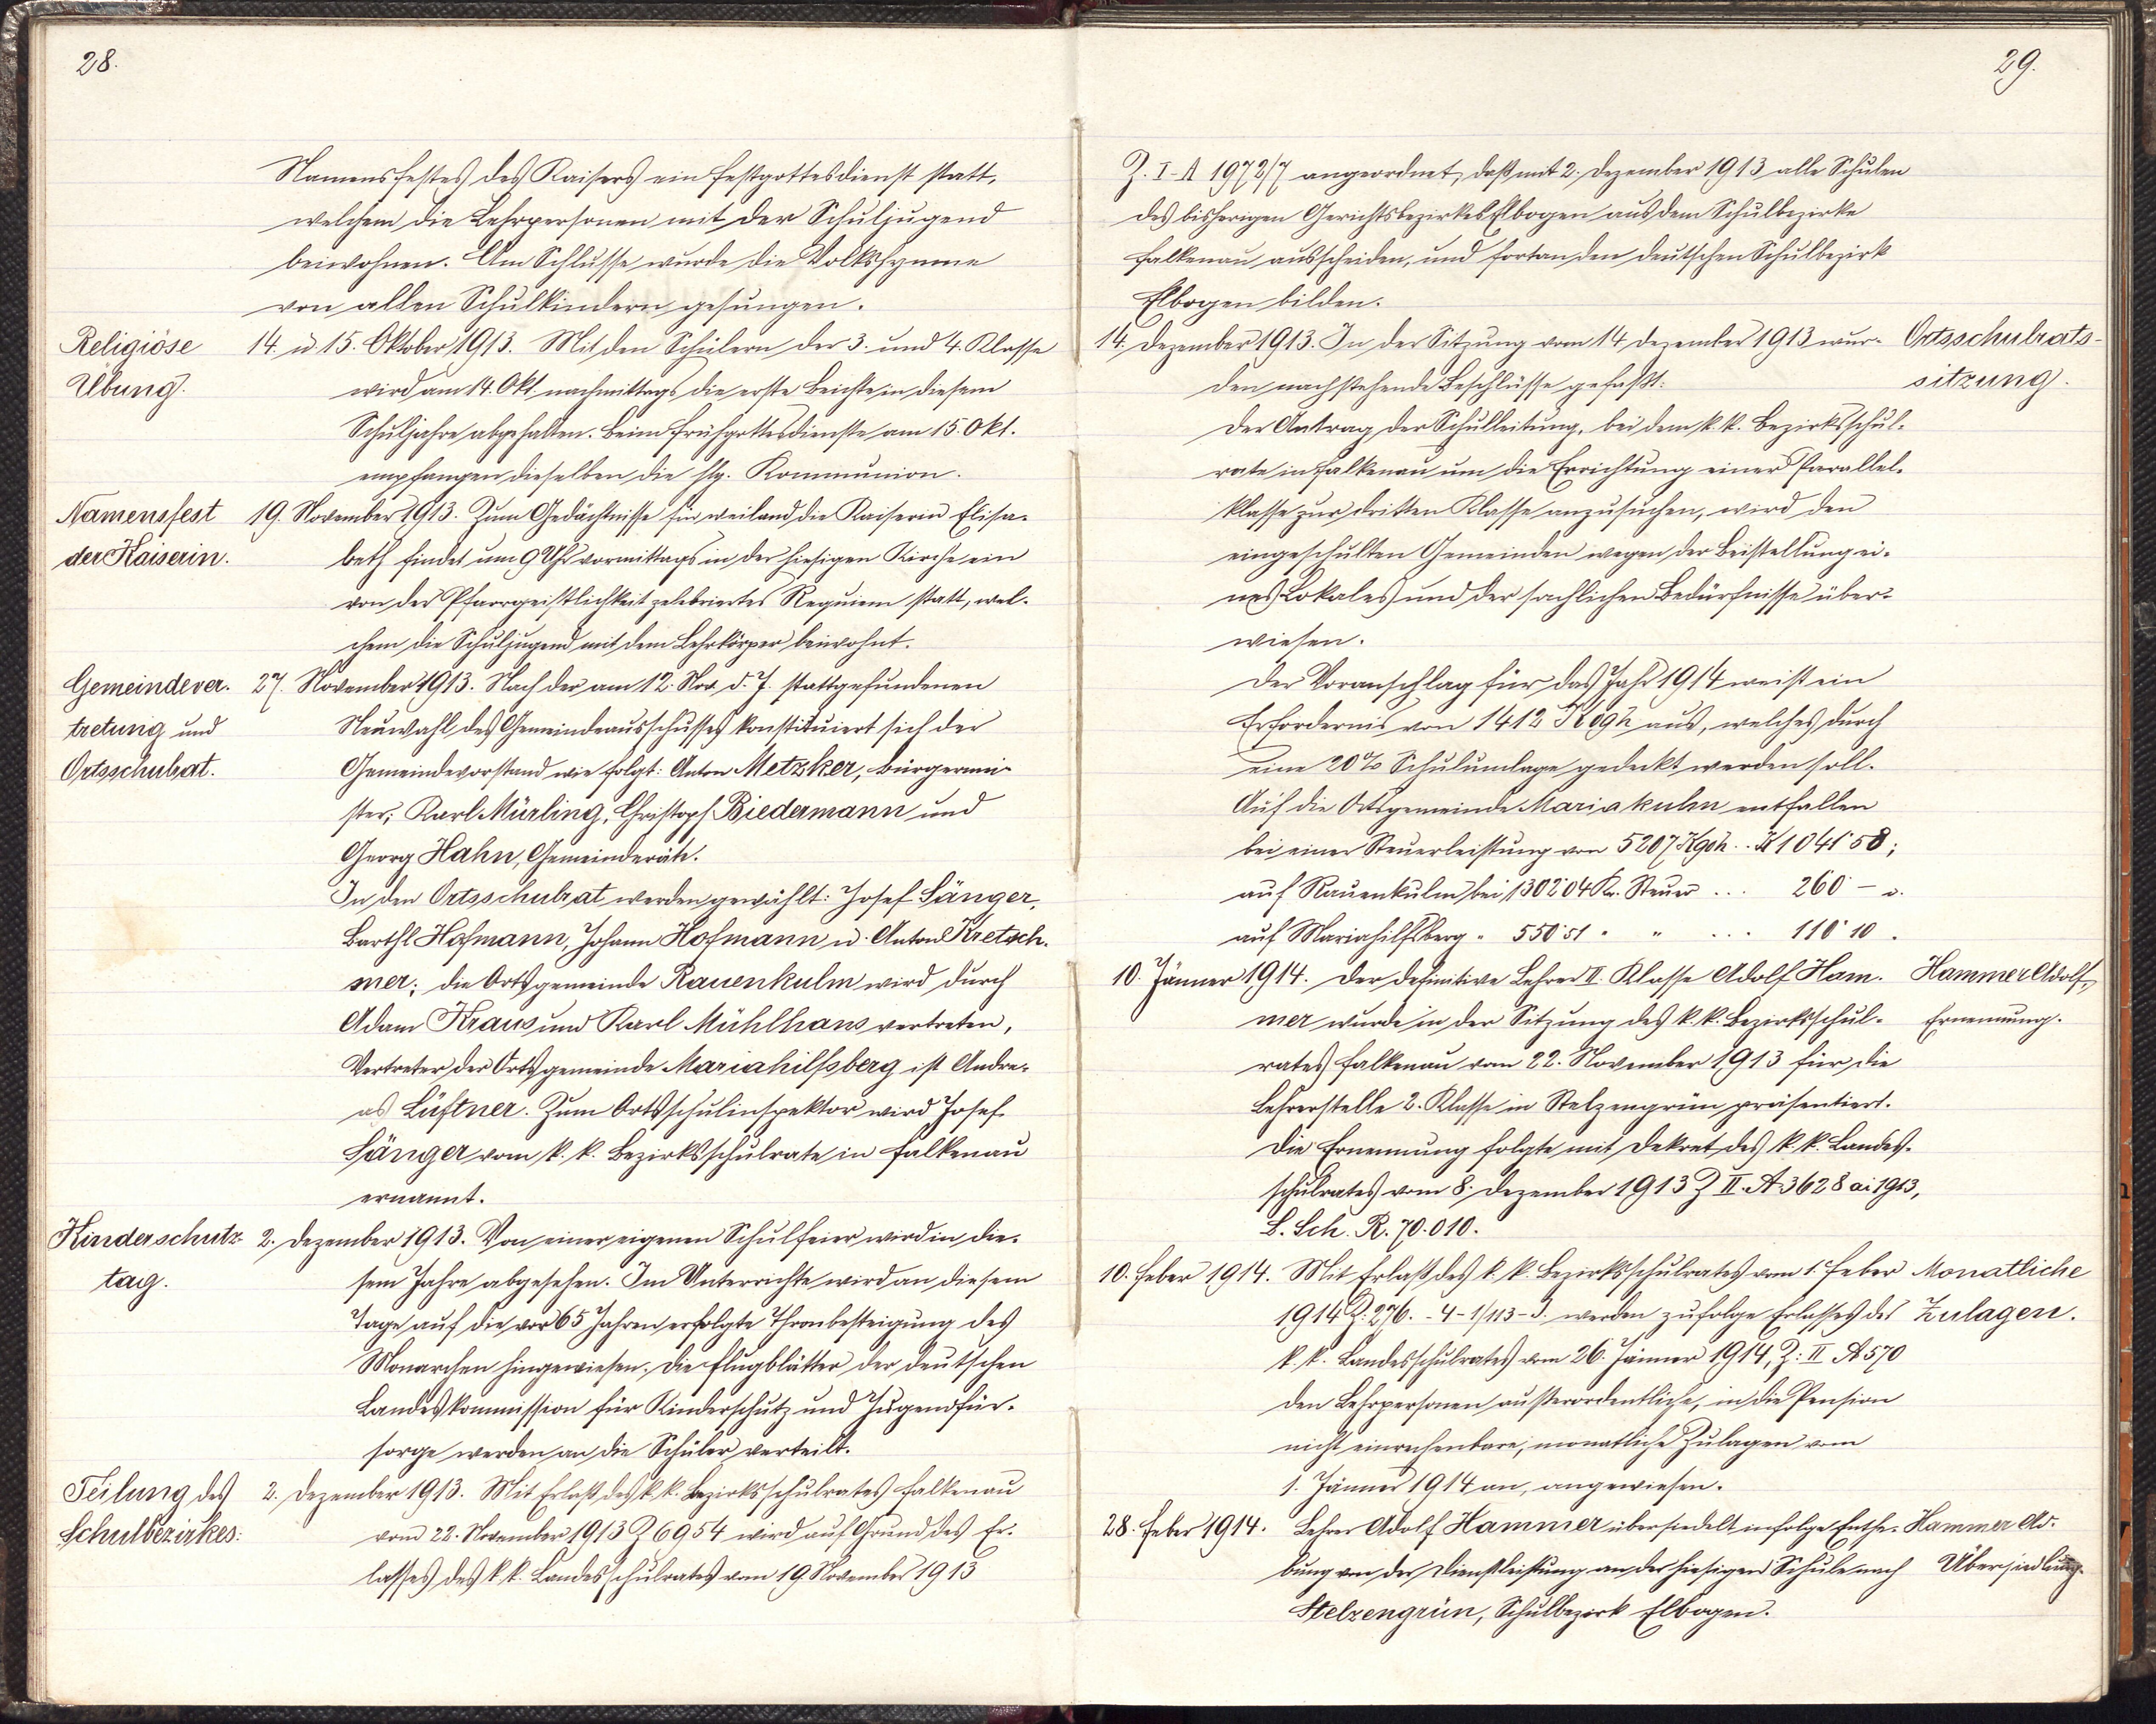 28.
Namensfestes des Kaisers ein Festgottesdienst statt,
welchem die Lehrpersonen mit der Schuljugend
beiwohnen. Am Schlusse wurde die Volkshymne
von allen Schulkindern gesungen.
Religiöse Übung.
14. u 15. Oktober 1913. Mit den Schülern der 3. und 4. Klasse
wird am 14. Okt. nachmittags die erste Beichte in diesem
Schuljahre abgehalten. Beim Frühgottesdienste am 15. Okt.
empfangen dieselben die hlg. Kommunion.
Namensfest der Kaiserin.
19. November 1913. Zum Gedächtnisse für weiland die Kaiserin Elisa-
beth findet um 9 Uhr vormittags in der hiesigen Kirche ein
von der Pfarrgeistlichkeit zelebriertes Requiem statt, wel-
chem die Schuljugend mit dem Lehrkörper beiwohnt.
Gemeindever-
tretung und
Ortsschulrat.
27. November 1913. Nach der am 12. Nov. d. J. stattgefundenen
Neuwahl des Gemeindeausschusses konstituiert sich der
Gemeindevorstand wie folgt: Anton Metzker, Bürgermei-
ster; Karl Mürling, Christoph Biedermann und
Georg Hahn, Gemeinderäte.
In den Ortsschulrat werden gewählt: Josef Sänger,
Barthl Hofmann, Johann Hofmann u. Anton Kretsch-
mer; die Ortsgemeinde Rauenkulm wird durch
Adam Kraus und Karl Mühlhans vertreten,
Vertreter der Ortsgemeinde Mariahilfsberg ist Andre-
as Lüftner. Zum Ortsschulinspektor wird Josef
Sänger vom k. k. Bezirksschulrate in Falkenau
ernannt.
Kinderschutz-
tag.
2. Dezember 1913. Von einer eigenen Schulfeier wird in die-
sem Jahre abgesehen. Im Unterrichte wird an diesem
Tage auf die vor 65 Jahren erfolgte Thronbesteigung des
Monarchen hingewiesen. Die Flugblätter der deutschen
Landeskommission für Kinderschutz und Jugendfür-
sorge werden an die Schüler verteilt.
Teilung des
Schulbezirkes:
2. Dezember 1913. Mit Erlaß des k. k. Bezirksschulrates Falkenau
vom 22. November 1913 Z 6954 wird auf Grund des Er-
lasses des k. k. Landesschulrates vom 19. November 1913
29.
Z. I-A 1972/7 angeordnet, daß mit 2. Dezember 1913 alle Schulen
des bisherigen Gerichtsbezirkes Elbogen aus dem Schulbezirke
Falkenau ausscheiden, und fortan den deutschen Schulbezirk
Elbogen bilden.
14. Dezember 1913. In der Sitzung vom 14. Dezember 1913 wur-
Ortsschulrats-
sitzung.
den nachstehende Beschlüsse gefaßt:
Der Antrag der Schulleitung, bei dem k. k. Bezirksschul-
rate in Falkenau um die Errichtung einer Parallel-
klasse zur dritten Klasse anzusuchen, wird den
eingeschulten Gemeinden wegen der Beistellung ei-
nes Lokales und der sachlichen Bedürfnisse über-
wiesen.
Der Voranschlag für das Jahr 1914 weist ein
Erfordernis von 1412 K 09 h aus, welches durch
eine 20% Schulumlage gedeckt werden soll.
Auf die Ortsgemeinde Mariakulm entfallen
bei einer Steuerleistung von 5207 K 90 h . . K 1041˙58;
auf Rauenkulm bei 1302˙04 Kr. Steuer . . . 260 – u.
auf Mariahilfsberg " 550˙51 " " . . . 110˙10.
10. Jänner 1914. Der definitive Lehrer II. Klasse Adolf Ham-
Hammer Adolf,
Ernennung.
mer wurde in der Sitzung des k. k. Bezirksschul-
rates Falkenau vom 22. November 1913 für die
Lehrerstelle 2. Klasse in Stelzengrün präsentiert.
Die Ernennung folgte mit Dekret des k. k. Landes-
schulrates vom 8. Dezember 1913 Z II. A 3628 ai 1913,
L. Sch. R. 70.010.
10. Feber 1914. Mit Erlaß des k. k. Bezirksschulrates vom 1. Feber
Monatliche
Zulagen.
1914 Z. 276. - 4 - 1/113 - J. werden zufolge Erlasses des
k. k. Landesschulrates vom 26. Jänner 1914, Z: II A 570
den Lehrpersonen außerordentliche, in die Pension
nicht einrechenbare, monatliche Zulagen vom
1. Jänner 1914 an, angewiesen.
28. Feber 1914. Lehrer Adolf Hammer übersiedelt infolge Enthe-
Hammer Ad.
Übersiedlung.
bung von der Dienstleistung an der hiesigen Schule nach
Stelzengrün, Schulbezirk Elbogen.